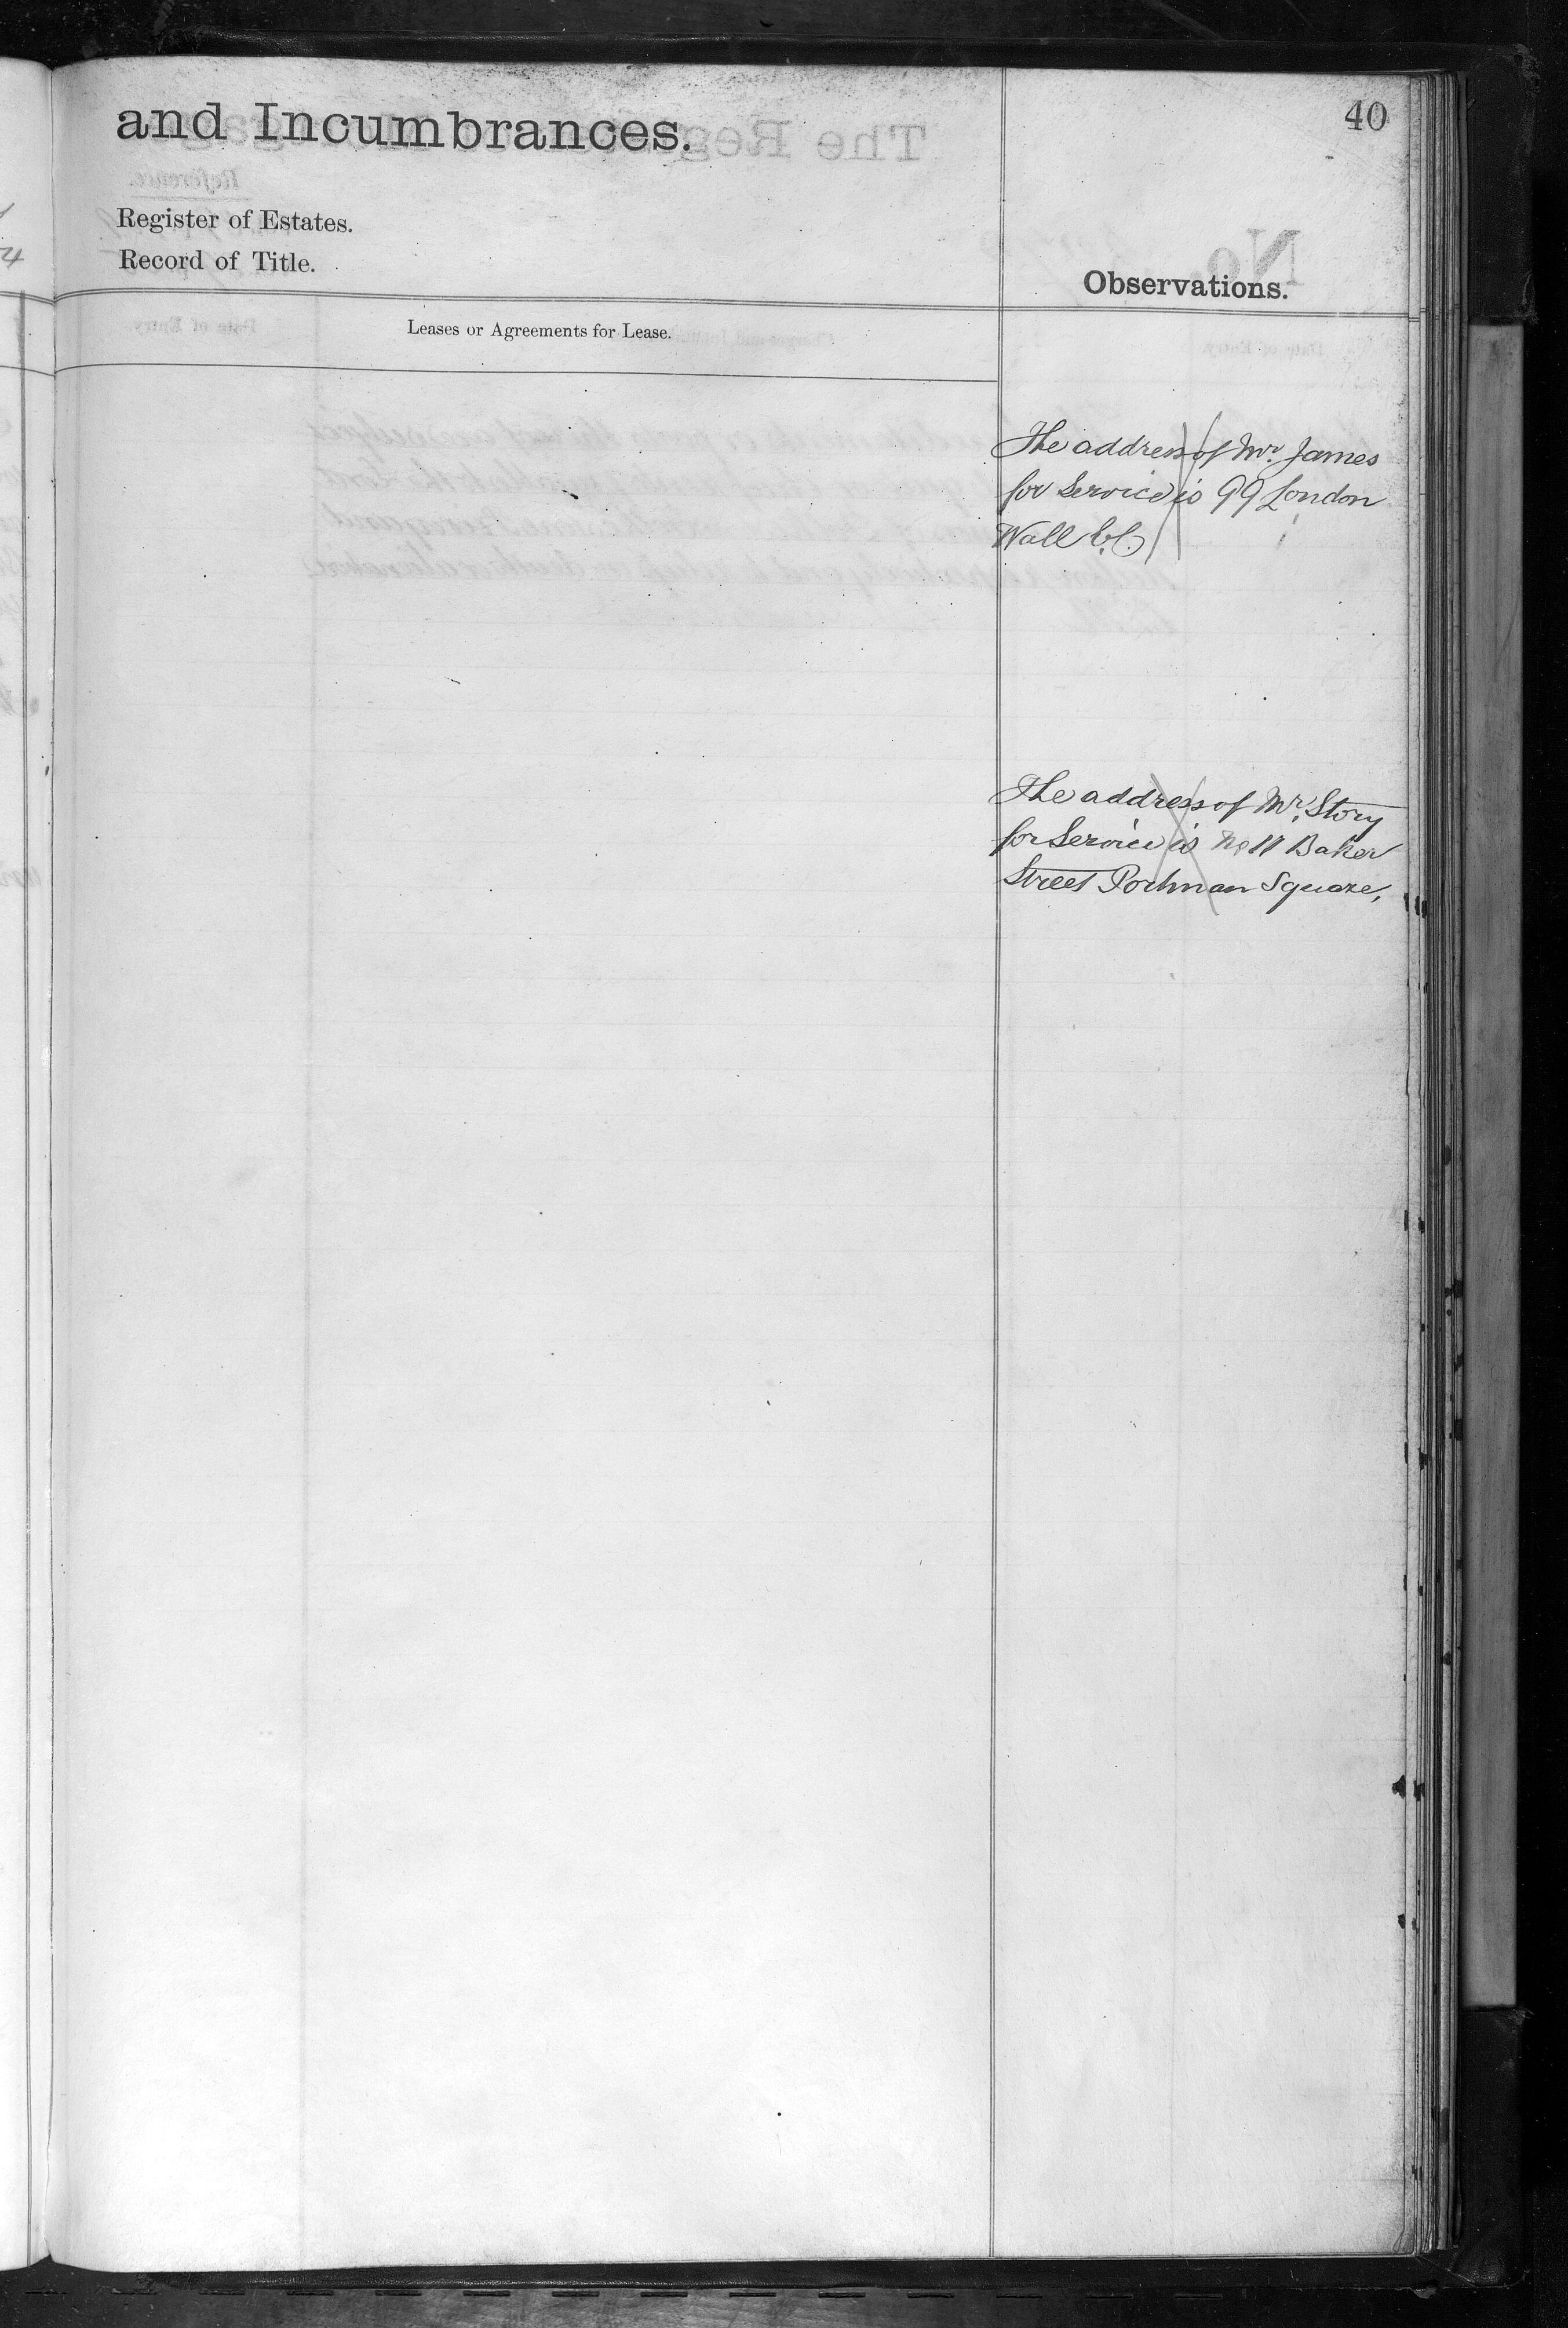 40
and Incumbrances.
Register of Estates.
Record of Title.
Observations.
Leases or Agreements for Lease.
The address of Mr. James
for Service is 99 London
Wall E.C.
The address of Mr. Story
for Service is No 11 Baker
Street Portman Square,